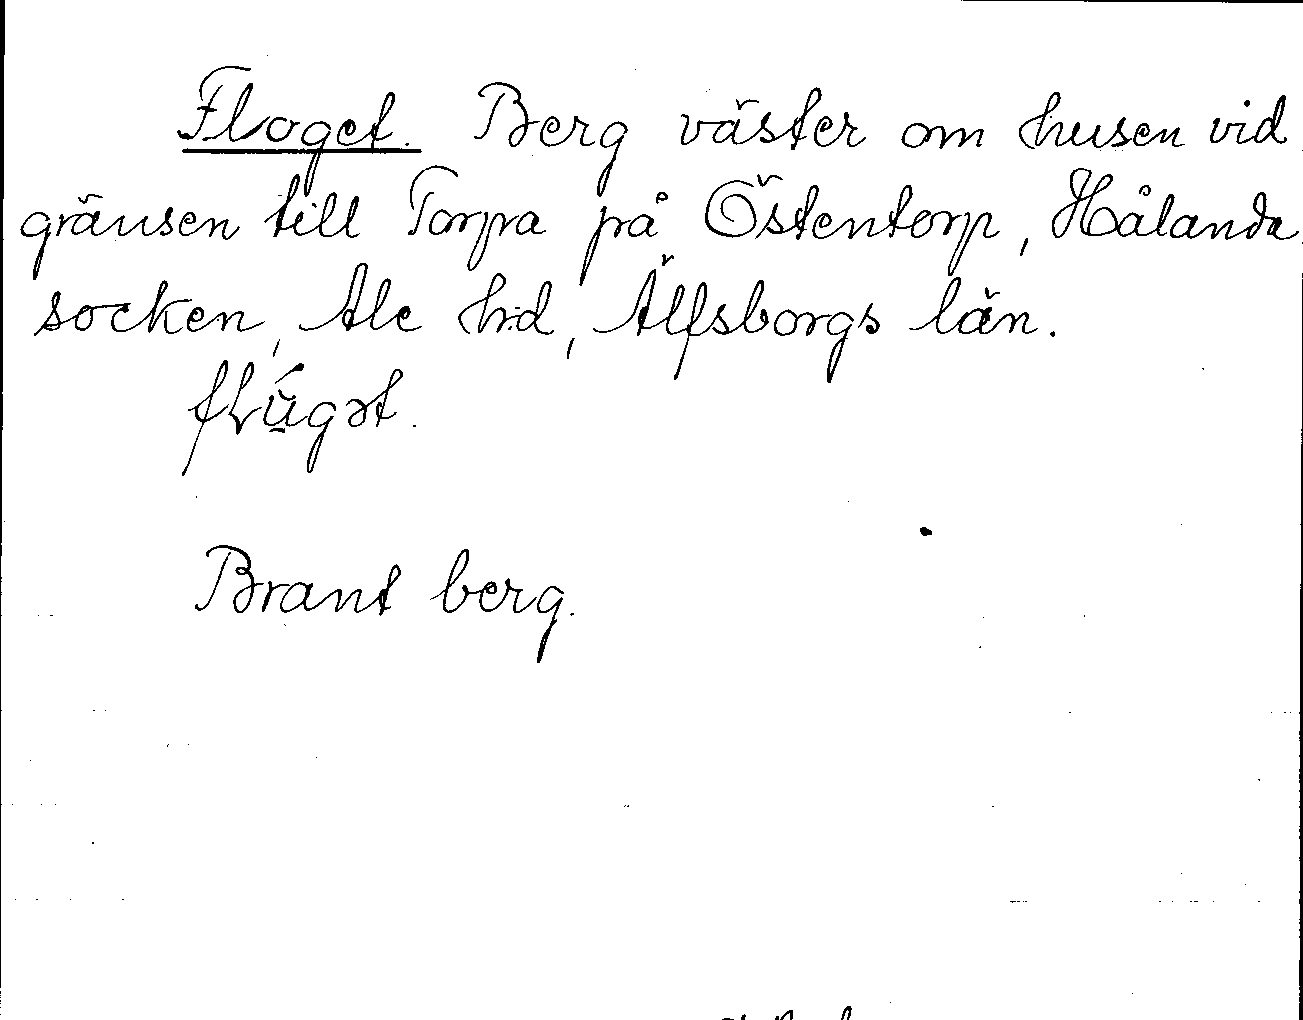 Floget. Berg väster om husen vid
gränsen till Torpa på Östentorp, Hålanda
socken, Ale hd, Älfsborgs län.
flúgət.
Brant berg.